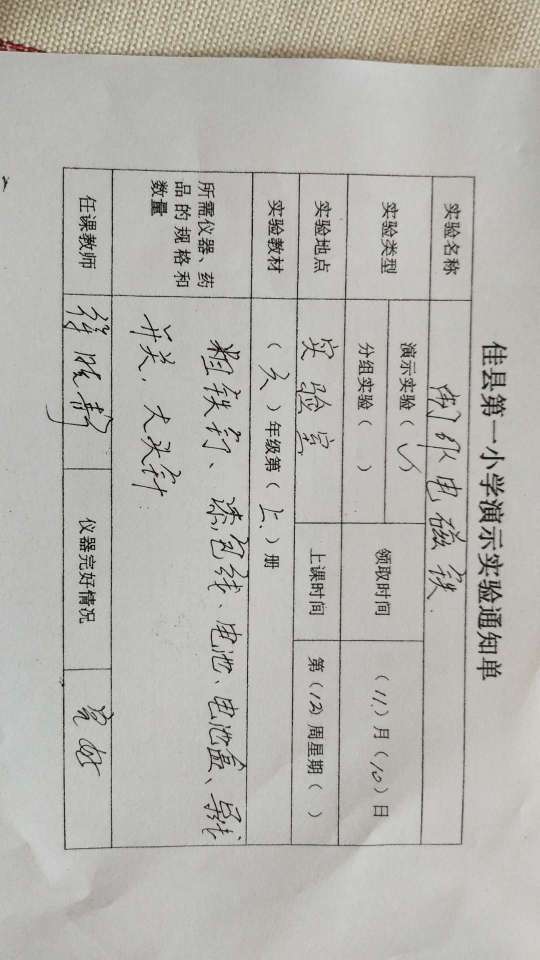 佳县第一小学演示实验通知单
实验名称 制作电磁铁.
实验类型 演示实验（✓） 领取时间 （11.）月（10）日
分组实验（ ）
实验地点 实验室 上课时间 第（12）周星期（ ）
实验教材 （六）年级第（上.）册
所需仪器、药品的规格和数量
粗铁钉、漆包线、电池、电池盒、导线
开关、大头针
任课教师 仪器完好情况 完好